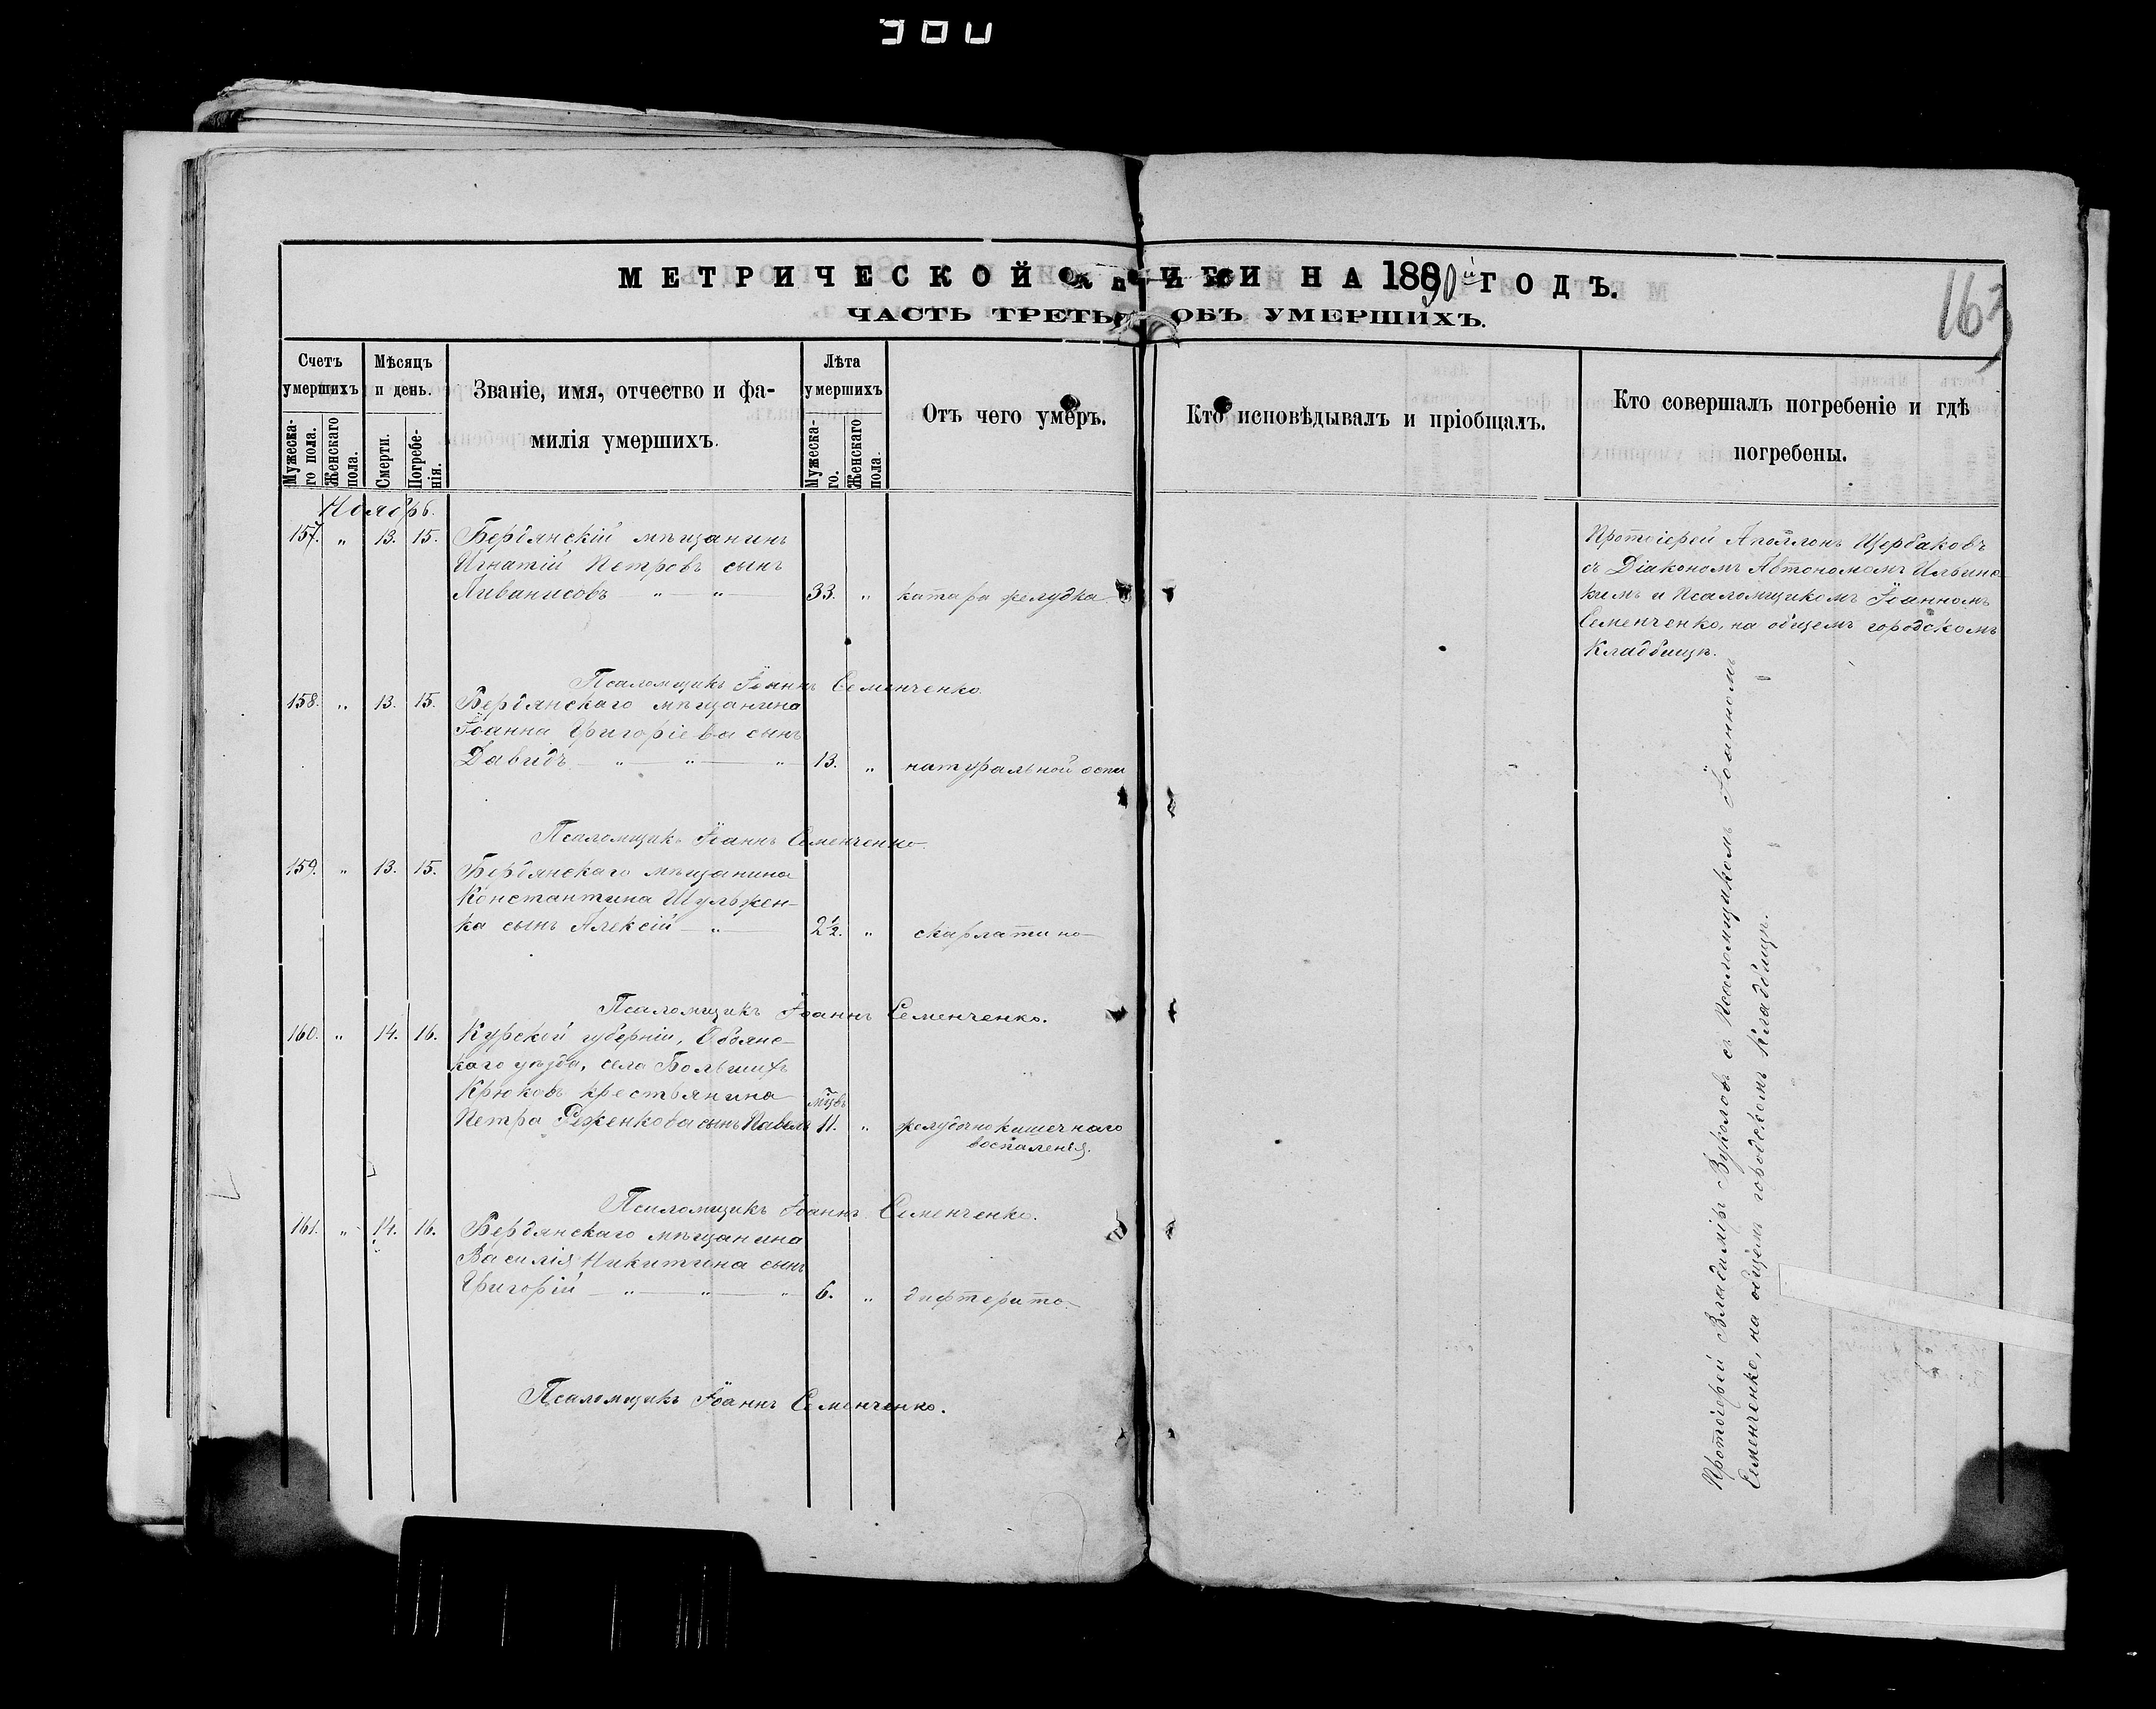 300
МЕТРИЧЕСКОЙ КНИГИ НА 1890й ГОДЪ.
ЧАСТЬ ТРЕТЬЯ ОБЪ УМЕРШИХЪ.
163
Счетъ умершихъ
Мѣсяцъ и день.
Званіе, имя, отчество и фа-
милія умершихъ.
Лѣта умершихъ
Отъ чего умеръ.
Кто исповѣдывалъ и пріобщалъ.
Кто совершалъ погребеніе и гдѣ
погребены.
Мужеска-
го пола.
Женскаго
пола.
Смерти.
Погребе-
нія.
Мужеска-
го.
Женскаго
пола.
Ноябрь.
157. " 13. 15. Бердянскій мѣщанинъ
Игнатій Петровъ сынъ
Ливанисовъ — " — " — 33. " катара желудка
Протоіерей Аполлонъ Щербаковъ
съ Діакономъ Автономомъ Ильинс-
кимъ и Псаломщикомъ Іоанномъ
Семенченко, на общемъ городскомъ
Кладбищѣ.
Псаломщикъ Іоаннъ Семенченко.
158. " 13. 15. Бердянскаго мѣщанина
Іоанна Григоріева сынъ
Давидъ — " — " — " 13. " натуральной оспы
Псаломщикъ Іоаннъ Семенченко.
159. " 13. 15. Бердянскаго мѣщанина
Константина Шульжен-
ка сынъ Алексій — " — 2½. " скарлатины
Псаломщикъ Іоаннъ Семенченко.
160. " 14. 16. Курской губерніи, Обоянс-
каго уѣзда, села Большихъ
Крюковъ крестьянина мцвъ
Петра Реженкова сынъ Павелъ 11. " желудочнокишечнаго
воспаленія.
Псаломщикъ Іоаннъ Семенченко.
161. " 14. 16. Бердянскаго мѣщанина
Василія Никитина сынъ
Григорій — " — " — " 6. " дифтерита.
Псаломщикъ Іоаннъ Семенченко.
Протоіерей Владиміръ Вуколовъ съ Псаломщикомъ Іоанномъ
Семенченко, на общемъ городскомъ Кладбищѣ.